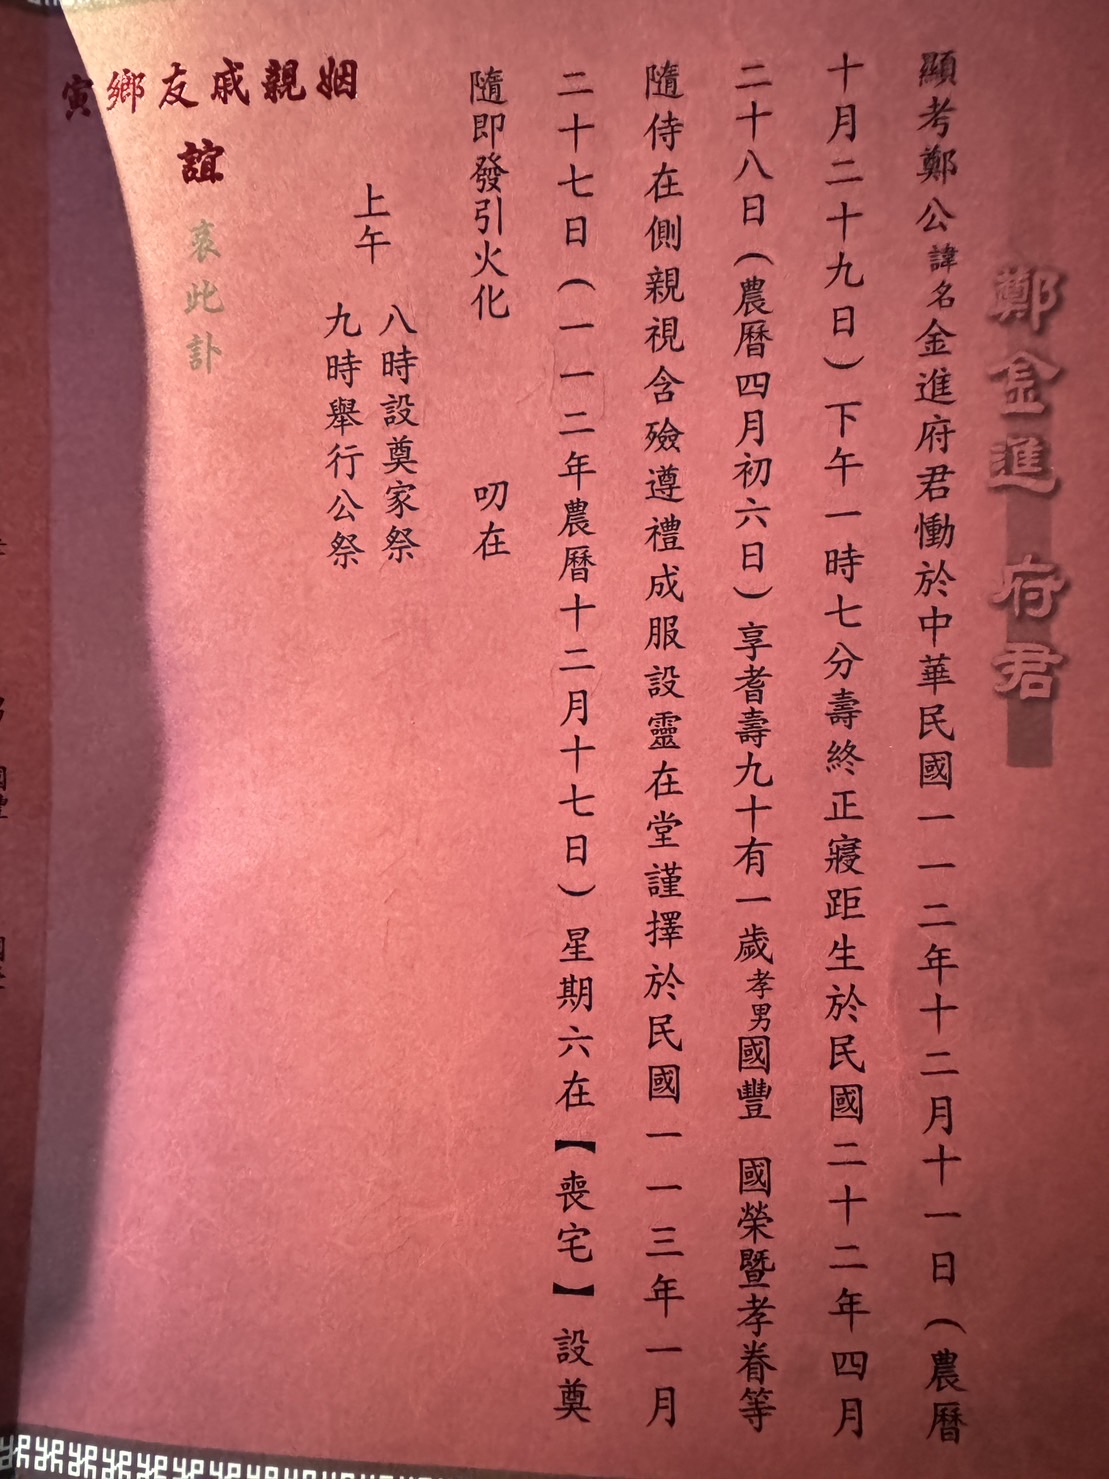 鄭金進 府君
顯考鄭公諱名金進府君慟於中華民國一一二年十二月十一日(農曆
十月二十九日)下午一時七分壽終正寢距生於民國二十二年四月
二十八日(農曆四月初六日)享耆壽九十有一歲孝男國豐 國榮暨孝眷等
隨侍在側親視含殮遵禮成服設靈在堂謹擇於民國一一三年一月
二十七日(一一二年農曆十二月十七日)星期六在【喪宅】設奠
隨即發引火化 叨在
上午
八時設奠家祭
九時舉行公祭
姻親戚友鄉寅
誼
哀此訃